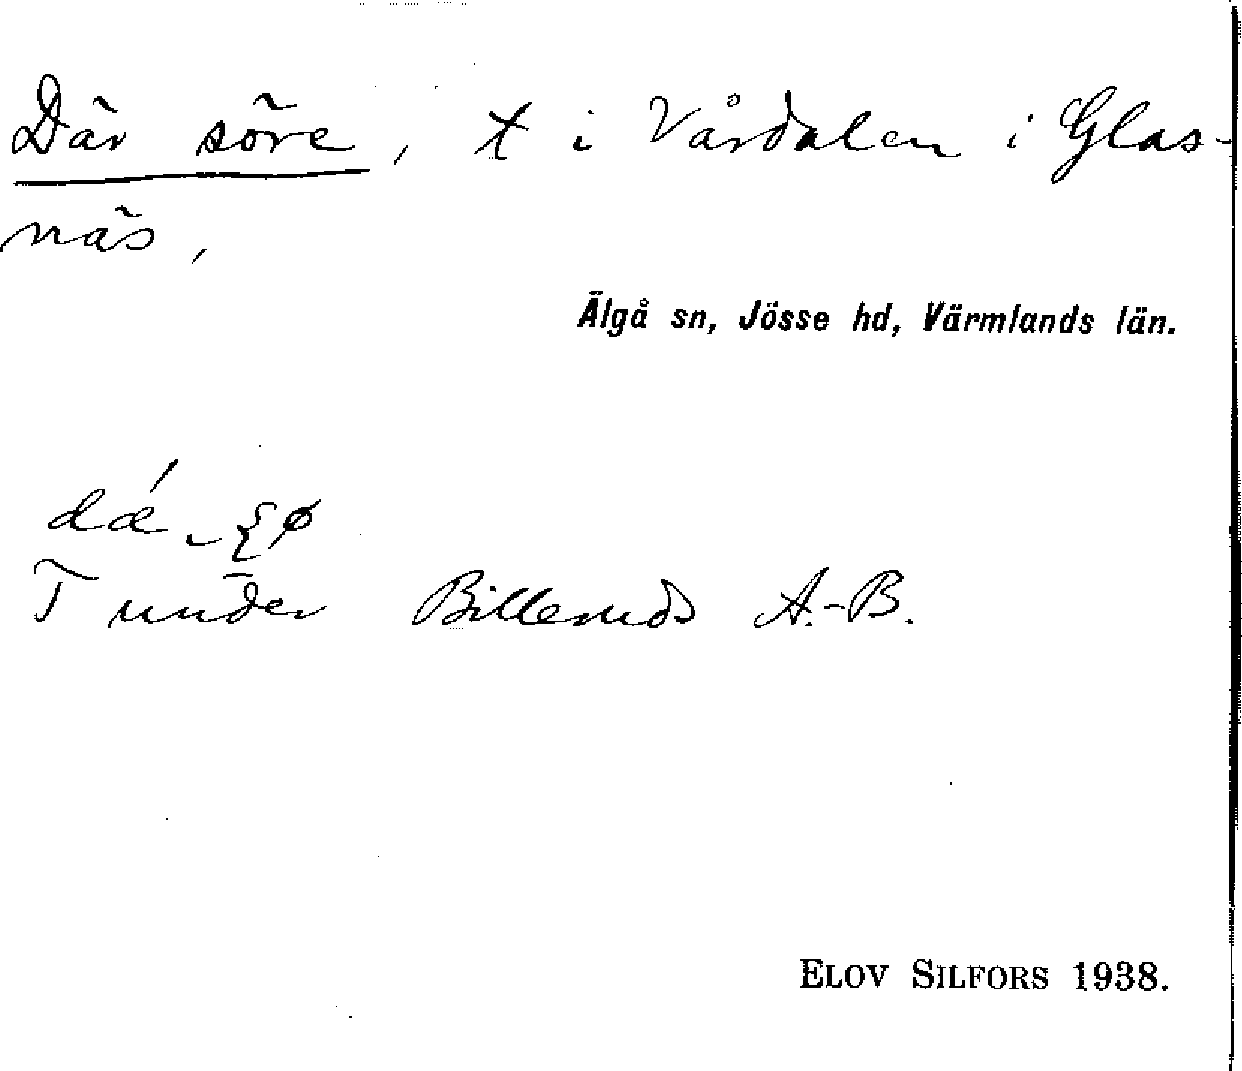 Där söre, t i Vårdalen i Glas-
näs,
Älgå sn, Jösse hd, Värmlands län.
T under Billeruds A.-B.
ELOV SILFORS 1938.